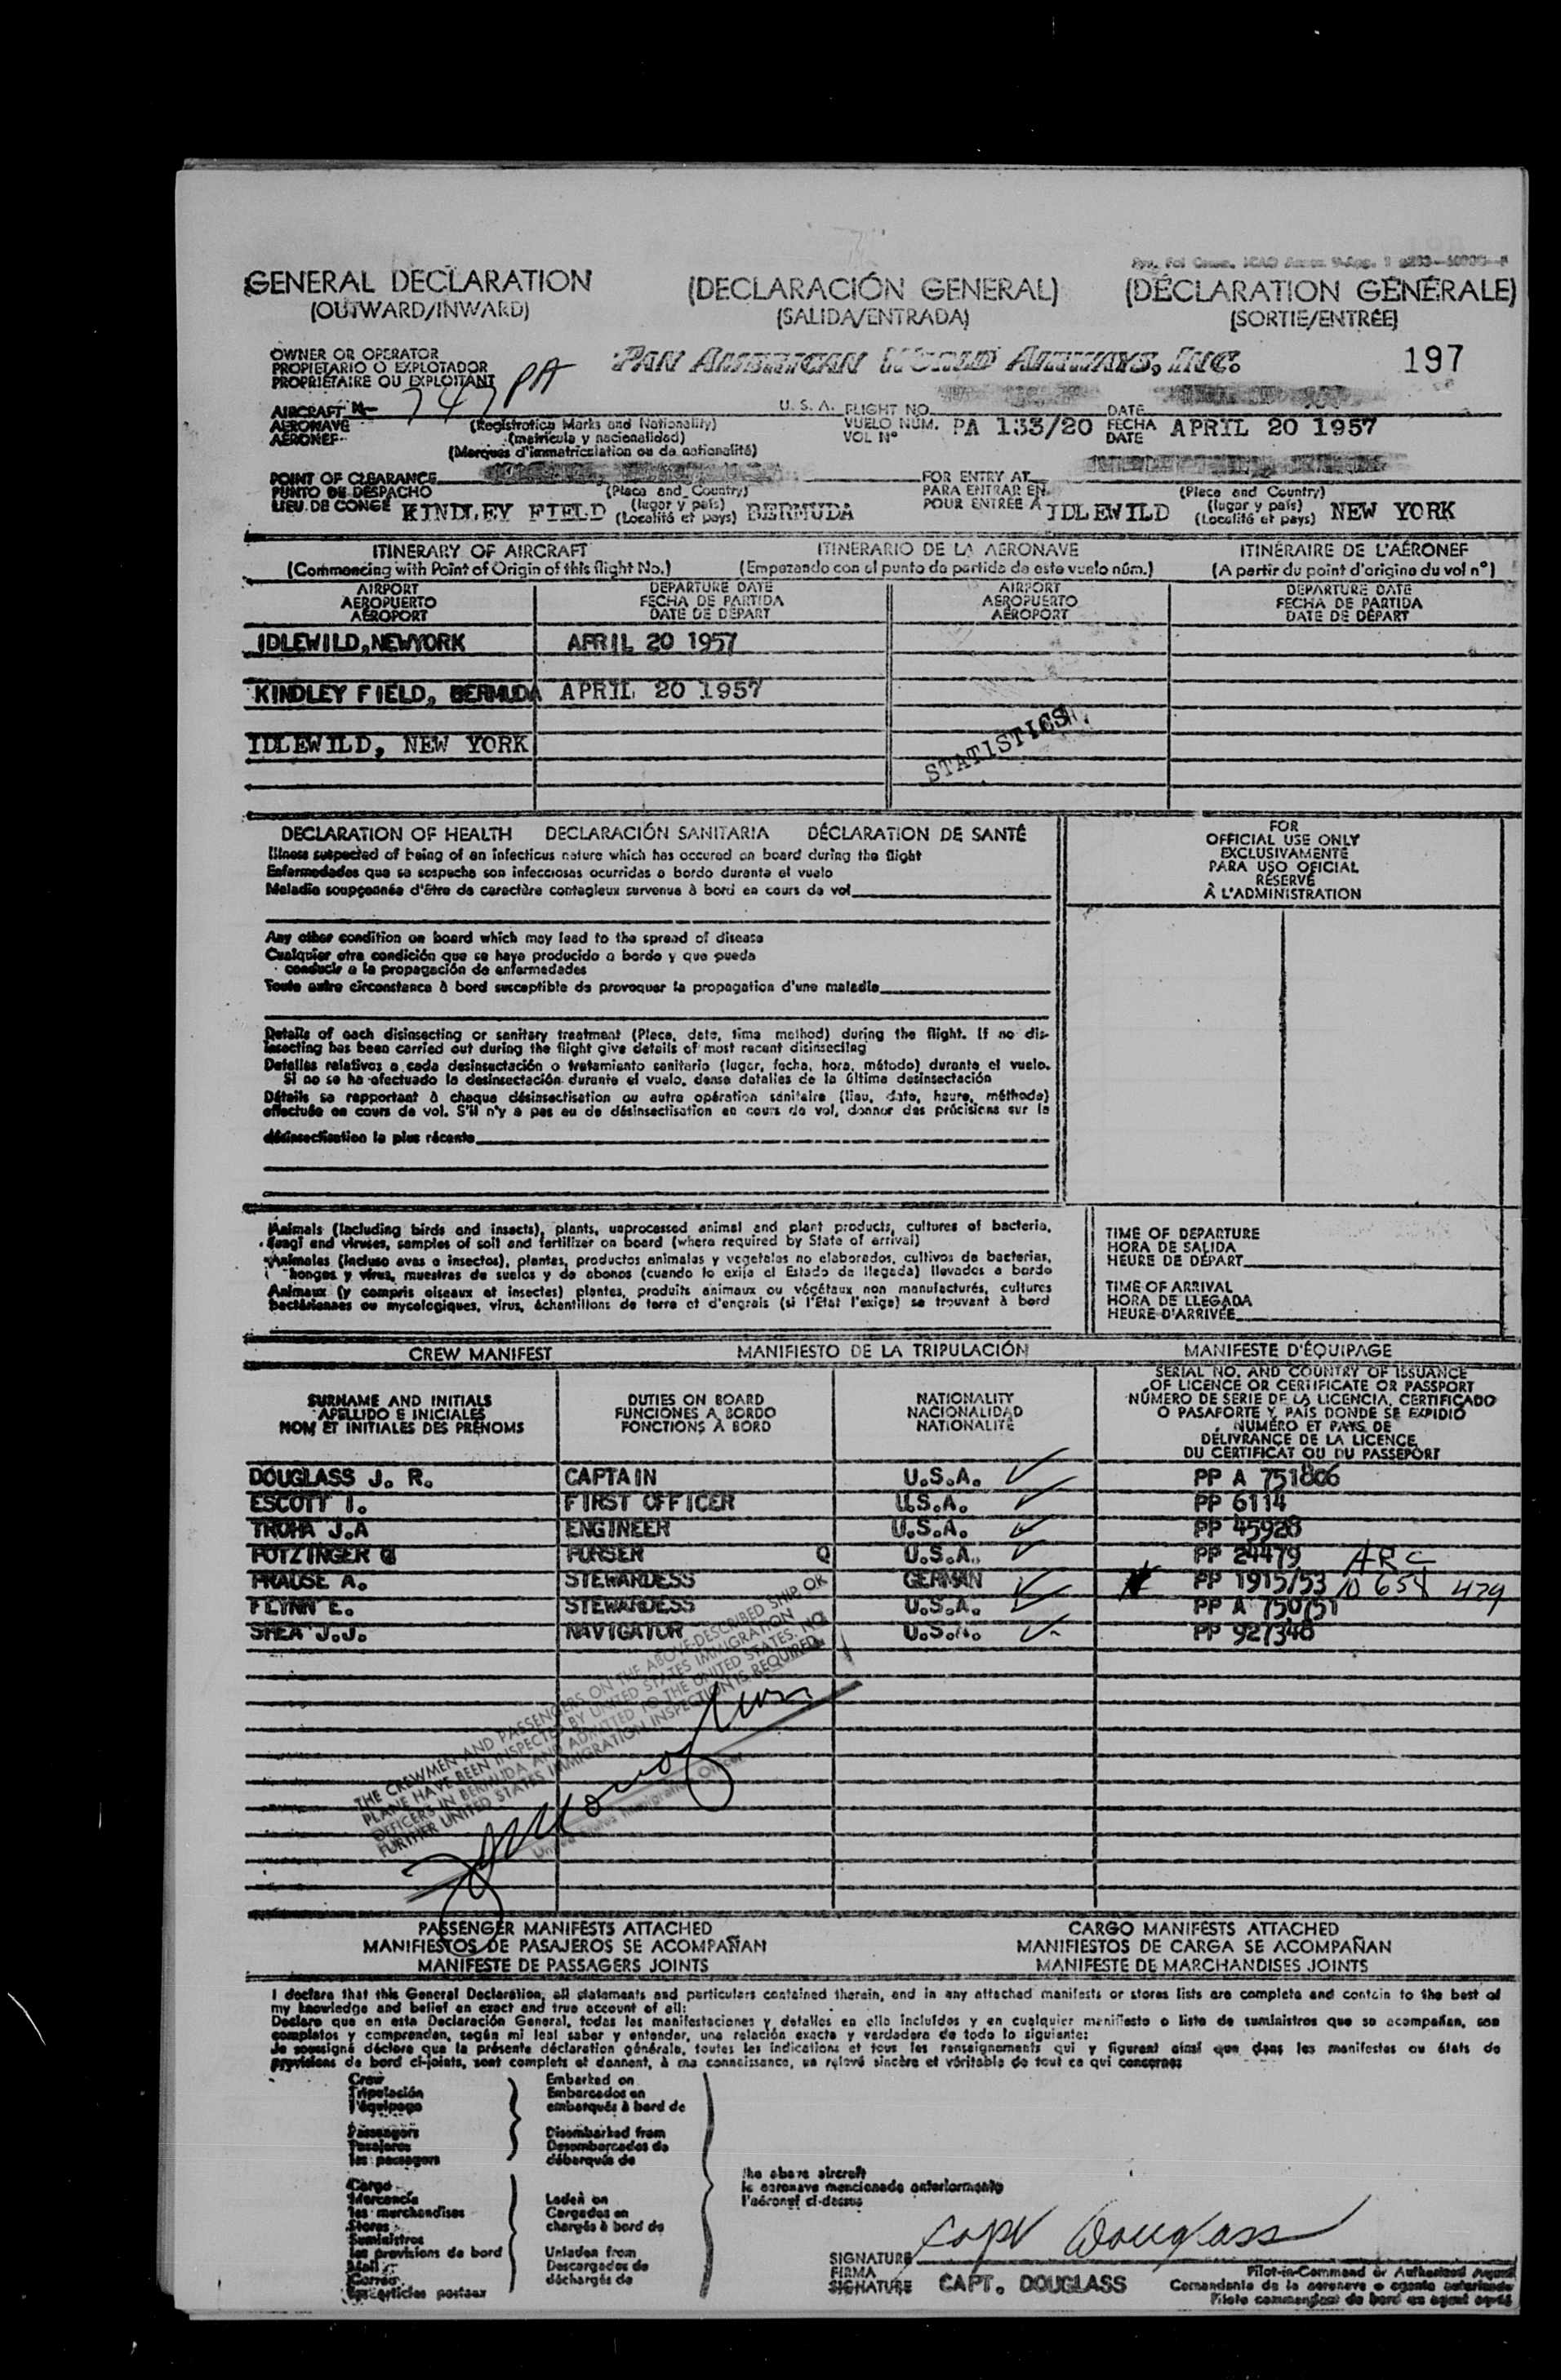 GENERAL DECLARATION (DECLARACIÓN GENERAL) (DÉCLARATION GÉNÉRALE)
(OUTWARD/INWARD) (SALIDA/ENTRADA) (SORTIE/ENTRÉE)
OWNER OR OPERATOR
PROPIETARIO O EXPLOTADOR
PROPRIÉTAIRE OU EXPLOITANT
PAN AMERICAN WORLD AIRWAYS, INC. 197
747 PA
AIRCRAFT N U. S. A. FLIGHT NO. DATE
AERONAVE (Registration Marks and Nationality) VUELO NÚM. PA 133/20 FECHA APRIL 20 1957
AÉRONEF (matrícula y nacionalidad) VOL Nº DATE
(Marques d'immatriculation ou de nationalité)
POINT OF CLEARANCE FOR ENTRY AT
PUNTO DE DESPACHO (Place and Country) PARA ENTRAR EN (Place and Country)
LIEU DE CONGÉ KINDLEY FIELD (lugar y país) BERMUDA POUR ENTRÉE À IDLEWILD (lugar y país) NEW YORK
(Localité et pays) (Localité et pays)
ITINERARY OF AIRCRAFT ITINERARIO DE LA AERONAVE ITINÉRAIRE DE L'AÉRONEF
(Commencing with Point of Origin of this flight No.) (Empezando con el punto de partida de este vuelo núm.) (A partir du point d'origine du vol nº)
AIRPORT DEPARTURE DATE AIRPORT DEPARTURE DATE
AEROPUERTO FECHA DE PARTIDA AEROPUERTO FECHA DE PARTIDA
AÉROPORT DATE DE DÉPART AÉROPORT DATE DE DÉPART
IDLEWILD,NEWYORK APRIL 20 1957
KINDLEY FIELD, BERMUDA APRIL 20 1957
IDLEWILD, NEW YORK
STATISTICS
DECLARATION OF HEALTH DECLARACIÓN SANITARIA DÉCLARATION DE SANTÉ
Illness suspected of being of an infectious nature which has occured on board during the flight
Enfermedades que se sospecha son infecciosas ocurridas a bordo durante el vuelo
Maladie soupçonnée d'être de caractère contagieux survenue à bord en cours de vol
FOR
OFFICIAL USE ONLY
EXCLUSIVAMENTE
PARA USO OFICIAL
RÉSERVÉ
À L'ADMINISTRATION
Any other condition on board which may lead to the spread of disease
Cualquier otra condición que se haya producido a bordo y que pueda
conducir a la propagación de enfermedades
Toute autre circonstance à bord susceptible de provoquer la propagation d'une maladie
Details of each disinsecting or sanitary treatment (Place, date, time method) during the flight. If no dis-
insecting has been carried out during the flight give details of most recent disinsecting
Detalles relativos a cada desinsectación o tratamiento sanitario (lugar, fecha, hora, método) durante el vuelo.
Si no se ha efectuado la desinsectación durante el vuelo, dense detalles de la última desinsectación
Détails se rapportant à chaque désinsectisation ou autre opération sanitaire (lieu, date, heure, méthode)
effectuée en cours de vol. S'il n'y a pas eu de désinsectisation en cours de vol, donner des précisions sur la
désinsectisation la plus récente
Animals (including birds and insects), plants, unprocessed animal and plant products, cultures of bacteria,
fungi and viruses, samples of soil and fertilizer on board (where required by State of arrival)
Animales (incluso aves e insectos), plantas, productos animales y vegetales no elaborados, cultivos de bacterias,
hongos y virus, muestras de suelos y de abonos (cuando lo exija el Estado de llegada) llevados a bordo
Animaux (y compris oiseaux et insectes) plantes, produits animaux ou végétaux non manufacturés, cultures
bactériennes ou mycologiques, virus, échantillons de terre et d'engrais (si l'État l'exige) se trouvant à bord
TIME OF DEPARTURE
HORA DE SALIDA
HEURE DE DÉPART
TIME OF ARRIVAL
HORA DE LLEGADA
HEURE D'ARRIVÉE
CREW MANIFEST MANIFIESTO DE LA TRIPULACIÓN MANIFESTE D'ÉQUIPAGE
SURNAME AND INITIALS
APELLIDO E INICIALES
NOM ET INITIALES DES PRÉNOMS
DUTIES ON BOARD
FUNCIONES A BORDO
FONCTIONS À BORD
NATIONALITY
NACIONALIDAD
NATIONALITÉ
SERIAL NO. AND COUNTRY OF ISSUANCE
OF LICENCE OR CERTIFICATE OR PASSPORT
NÚMERO DE SERIE DE LA LICENCIA, CERTIFICADO
O PASAPORTE Y PAÍS DONDE SE EXPIDIÓ
NUMÉRO ET PAYS DE
DÉLIVRANCE DE LA LICENCE,
DU CERTIFICAT OU DU PASSEPORT
DOUGLASS J. R. CAPTAIN U.S.A. PP A 751806
ESCOTT I. FIRST OFFICER U.S.A. PP 6114
TROHA J.A ENGINEER U.S.A. PP 45928
POTZINGER G PURSER Q U.S.A. PP 24479 ARC
PRAUSE A. STEWARDESS GERMAN PP 1915/53 10 658 429
FLYNN E. STEWARDESS U.S.A. PP A 750751
SHEA J.J. NAVIGATOR U.S.A. PP 927348
THE CREWMEN AND PASSENGERS ON THE ABOVE-DESCRIBED SHIP OR
PLANE HAVE BEEN INSPECTED BY UNITED STATES IMMIGRATION
OFFICERS IN BERMUDA AND ADMITTED TO THE UNITED STATES. NO
FURTHER UNITED STATES IMMIGRATION INSPECTION IS REQUIRED.
United States Immigration Officer
PASSENGER MANIFESTS ATTACHED CARGO MANIFESTS ATTACHED
MANIFIESTOS DE PASAJEROS SE ACOMPAÑAN MANIFIESTOS DE CARGA SE ACOMPAÑAN
MANIFESTE DE PASSAGERS JOINTS MANIFESTE DE MARCHANDISES JOINTS
I declare that this General Declaration, all statements and particulars contained therein, and in any attached manifests or stores lists are complete and contain to the best of
my knowledge and belief an exact and true account of all:
Declaro que en esta Declaración General, todas las manifestaciones y detalles en ella incluídos y en cualquier manifiesto o lista de suministros que se acompañan, son
completos y comprenden, según mi leal saber y entender, una relación exacta y verdadera de todo lo siguiente:
Je soussigné déclare que la présente déclaration générale, toutes les indications et tous les renseignements qui y figurent ainsi que dans les manifestes ou états de
provisions de bord ci-joints, sont complets et donnent, à ma connaissance, un relevé sincère et véritable de tout ce qui concerne:
Crew Embarked on
Tripulación Embarcados en
l'équipage embarqués à bord de
Passengers Disembarked from
Pasajeros Desembarcados de
les passagers débarqués de
the above aircraft
la aeronave mencionada anteriormente
l'aéronef ci-dessus
Cargo
Mercancía Laden on
les marchandises Cargados en
Stores chargés à bord de
Suministros
les provisions de bord Unladen from
Mail Descargados de
Correo déchargés de
les articles postaux
Capt Douglass
SIGNATURE
FIRMA
SIGNATURE CAPT. DOUGLASS
Pilot-in-Command or Authorized Agent
Comandante de la aeronave o agente autorizado
Pilote commandant de bord ou agent agréé